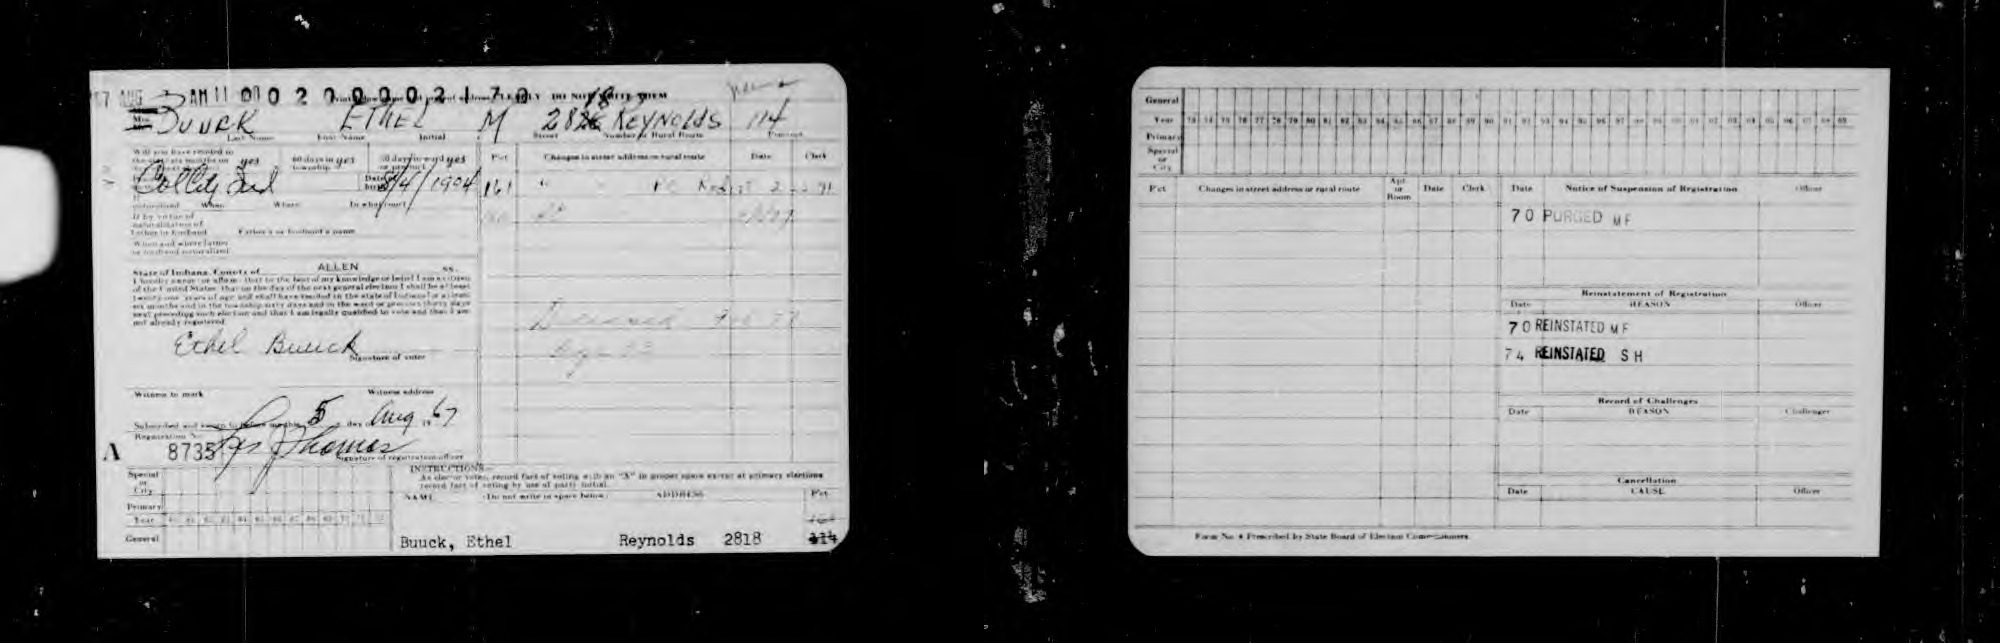 67 AUG 3 AM 11 00 0 2 0 0 0 0 0 2 1 7 0
BUUCK ETHEL M 2818 REYNOLDS 114
Last Name First Name Initial Street Number or Rural Route Precinct
yes 60 days in township yes 30 days in ward or precinct yes
Pct Changes in street address or rural route Date Clerk
Col City Ind Date of birth 5/4/1904
161
When Where In what court
If by virtue of
naturalization of
father or husband Father's or husband's name
When and where father
or husband naturalized
State of Indiana, County of ALLEN SS.
I hereby swear or affirm that to the best of my knowledge or belief I am a citizen
of the United States, that on the day of the next general election I shall be at least
twenty-one years of age and shall have resided in the state of Indiana for at least
six months and in the township sixty days and in the ward or precinct thirty days
next preceding such election and that I am legally qualified to vote and that I am
not already registered.
Deceased Feb
Ethel Buuck
Signature of voter
Witness to mark Witness address
Subscribed and sworn to before me this 5 day of Aug 1967
Registration No.
A 8735 Thomas
Signature of registration officer
INSTRUCTIONS
As elector votes, record fact of voting with an "X" in proper space except at primary elections
record fact of voting by use of party initial.
Special
or
City
NAME (Do not write in space below) ADDRESS Pct
Primary
Year
General
Buuck, Ethel Reynolds 2818 114
General
Year 73 74 75 76 77 78 79 80 81 82 83 84 85 86 87 88 89 90 91 92 93 94 95 96 97
Primary
Special
or
City
Pct Changes in street address or rural route Apt or Room Date Clerk
Date Notice of Suspension of Registration Officer
70 PURGED MF
Reinstatement of Registration
Date REASON Officer
70 REINSTATED MF
74 REINSTATED SH
Record of Challenges
Date REASON Challenger
Cancellation
Date CAUSE Officer
Form No. 4 Prescribed by State Board of Election Commissioners